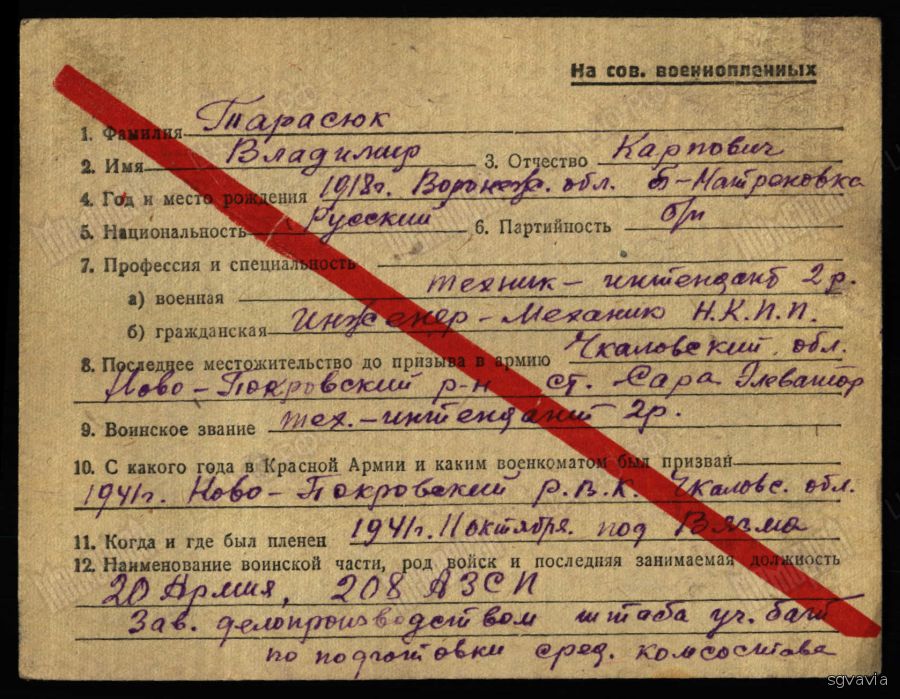 На сов. военнопленных
1. Фамилия Тарасюк
2. Имя Владимир 3. Отчество Карпович
4. Год и место рождения 1918г. Воронеж. обл. Б-Матреновка
5. Национальность Русский 6. Партийность б/п
7. Профессия и специальность
а) военная техник-интендант 2 р.
б) гражданская Инженер-Механик Н.К.П.П.
8. Последнее местожительство до призыва в армию Чкаловский обл.
Ново-Покровский р-н ст. Сара Элеватор
9. Воинское звание тех.-интендант 2р.
10. С какого года в Красной Армии и каким военкоматом был призван
1941г. Ново-Покровский Р.В.К. Чкаловс. обл.
11. Когда и где был пленен 1941г. 11 октября. под Вязма
12. Наименование воинской части, род войск и последняя занимаемая должность
20 Армия, 208 АЗСП
Зав. делопроизводством штаба уч. бат
по подготовки сред. комсостава
sgvavia